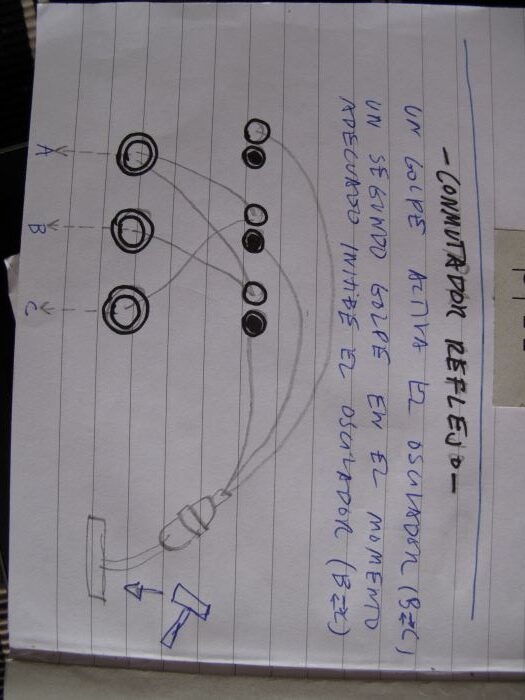 - CONMUTADOR REFLEJO -
UN GOLPE ACTIVA EL OSCILADOR (B⇄C),
UN SEGUNDO GOLPE EN EL MOMENTO
ADECUADO INHIBE EL OSCILADOR (B⇄C)
A
B
C